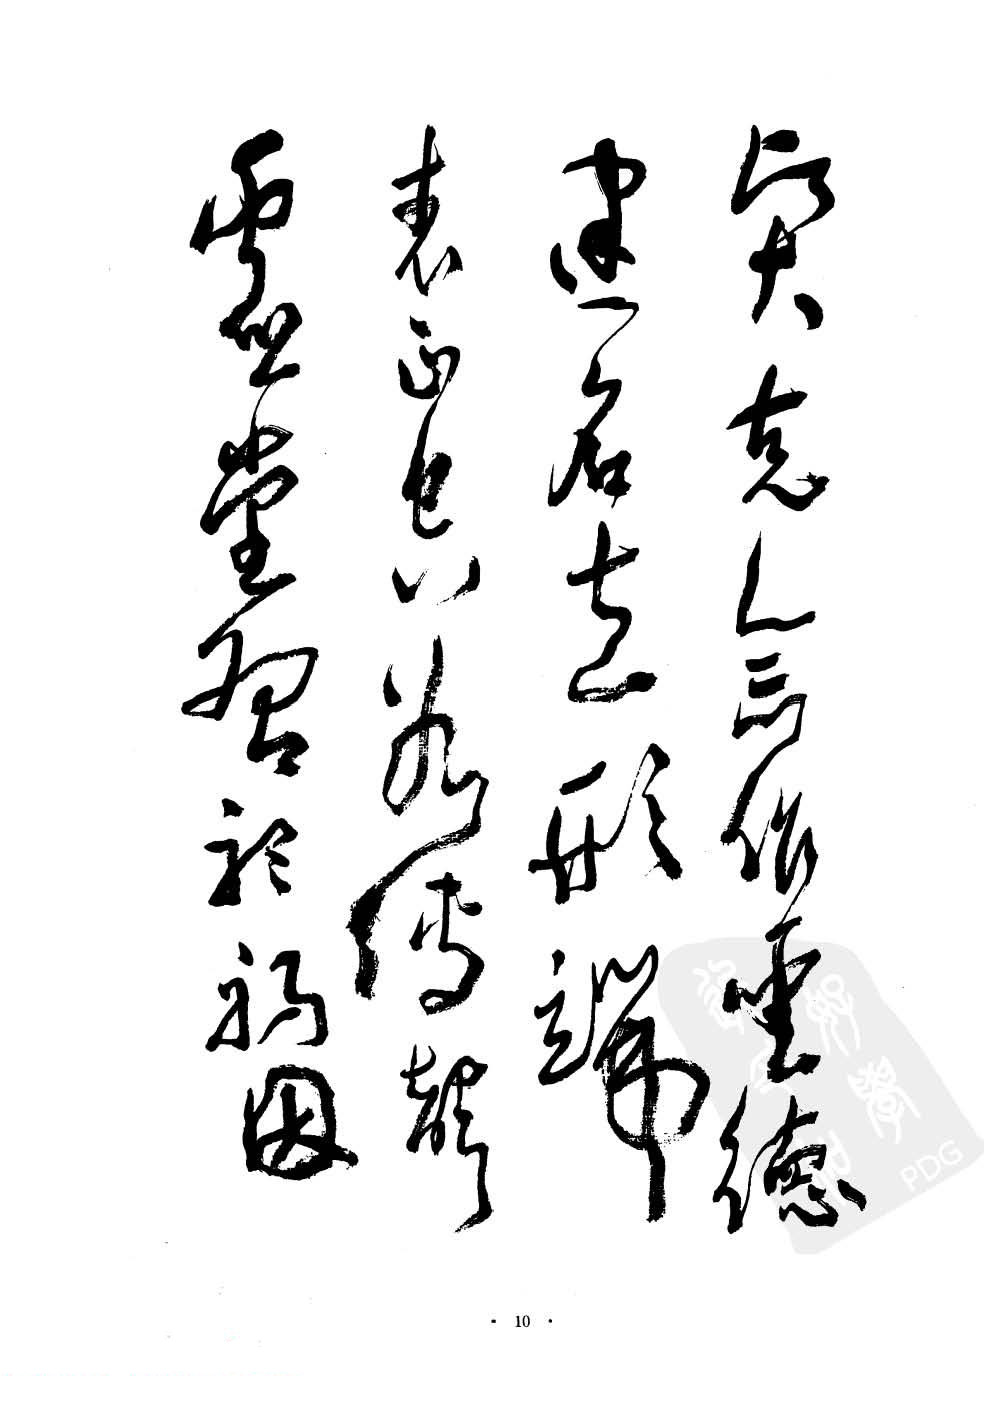 賢克念作聖德
建名立形端
表正空谷傳聲
虛堂習聽禍因
· 10 ·
PDG